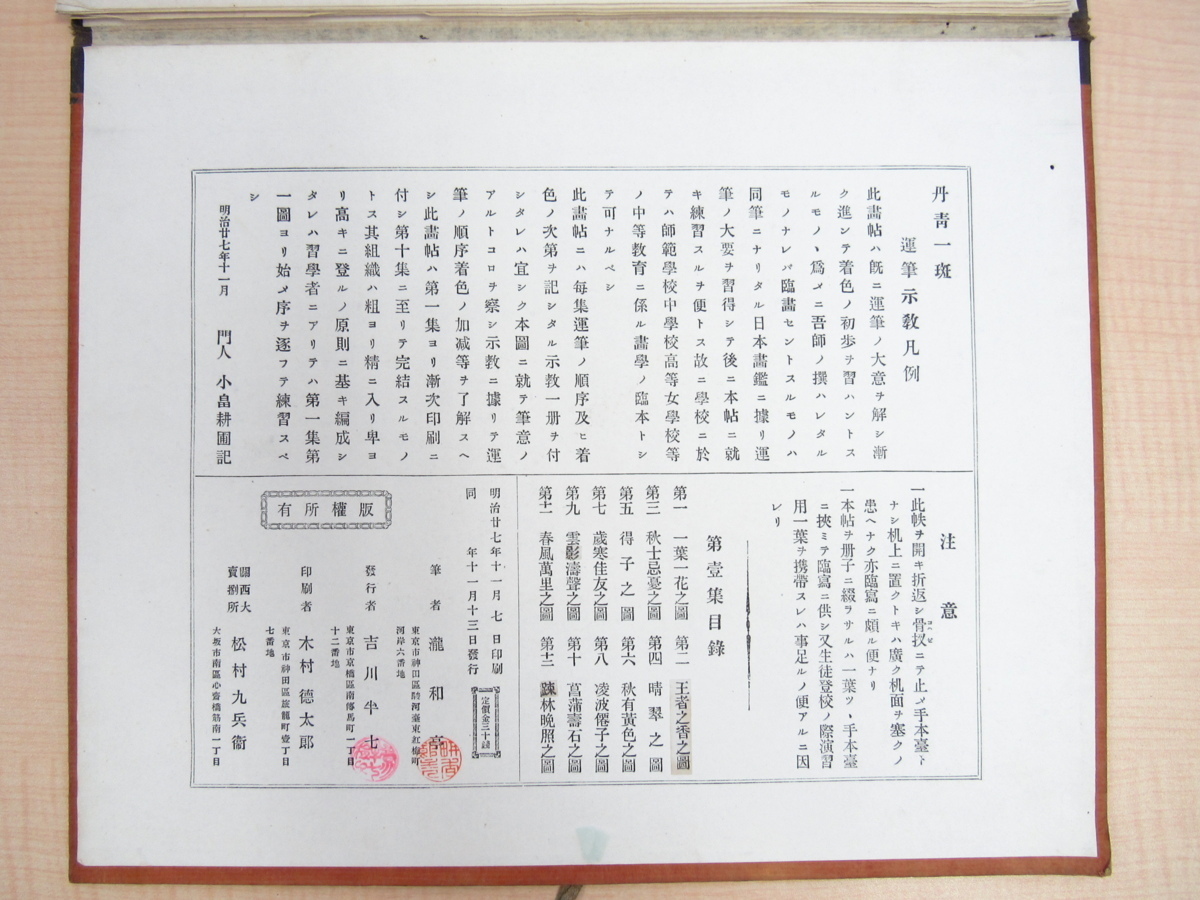 丹青一斑
運筆示教凡例
此畵帖ハ既ニ運筆ノ大意ヲ解シ漸
ク進ンテ着色ノ初歩ヲ習ハントス
ルモノヽ爲メニ吾師ノ撰ハレタル
モノナレバ臨畵セントスルモノハ
同筆ニナリタル日本畵鑑ニ據リ運
筆ノ大要ヲ習得シテ後ニ本帖ニ就
キ練習スルヲ便トス故ニ學校ニ於
テハ師範學校中學校高等女學校等
ノ中等教育ニ係ル畵學ノ臨本トシ
テ可ナルベシ
此畵帖ニハ毎集運筆ノ順序及ヒ着
色ノ次第ヲ記シタル示教一册ヲ付
シタレハ宜シク本圖ニ就テ筆意ノ
アルトコロヲ察シ示教ニ據リテ運
筆ノ順序着色ノ加减等ヲ了解スヘ
シ此畵帖ハ第一集ヨリ漸次印刷ニ
付シ第十集ニ至リテ完結スルモノ
トス其組織ハ粗ヨリ精ニ入リ卑ヨ
リ高キニ登ルノ原則ニ基キ編成シ
タレハ習學者ニアリテハ第一集第
一圖ヨリ始メ序ヲ逐フテ練習スベ
シ
明治廿七年十一月 門人 小畠耕圃記
注意
一此帙ヲ開キ折返シ骨扠ニテ止メ手本臺ト
ナシ机上ニ置クトキハ廣ク机面ヲ塞クノ
患ヘナク亦臨寫ニ頗ル便ナリ
一本帖ヲ册子ニ綴ラサルハ一葉ツヽ手本臺
ニ挾ミテ臨寫ニ供シ又生徒登校ノ際演習
用一葉ヲ携帶スレハ事足ルノ便アルニ因
レリ
第壹集目錄
第一 一葉一花之圖 第二 王者之香之圖
第三 秋士忌憂之圖 第四 晴翠之圖
第五 得子之圖 第六 秋有黃色之圖
第七 歲寒佳友之圖 第八 凌波僊子之圖
第九 雲影濤聲之圖 第十 菖蒲壽石之圖
第十一 春風萬里之圖 第十二 疎林晩照之圖
明治廿七年十一月七日印刷
同年十一月十三日發行
定價金三十錢
筆者 東京市神田區駿河臺東紅梅町河岸六番地 瀧和亭
發行者 東京市京橋區南傳馬町一丁目十二番地 吉川半七
印刷者 東京市神田區旅籠町壹丁目七番地 木村德太郎
關西大賣捌所 大坂市南區心齋橋筋南一丁目 松村九兵衞
版權所有